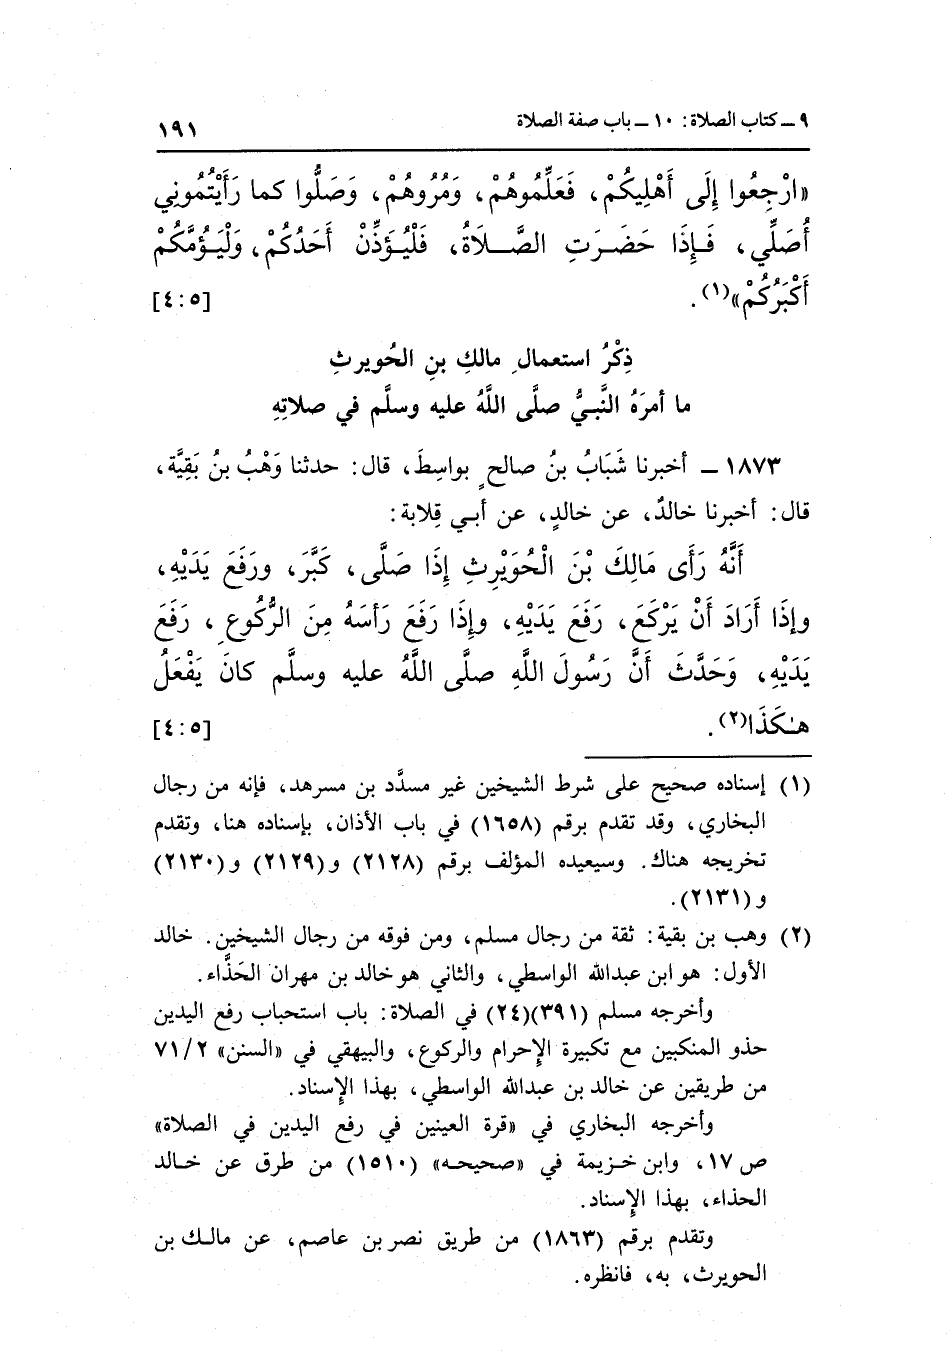 ٩ ـ كتاب الصلاة: ١٠ ـ باب صفة الصلاة
١٩١
«ارْجِعُوا إِلَى أَهْلِيكُمْ، فَعَلِّمُوهُمْ، وَمُرُوهُمْ، وَصَلُّوا كما رَأَيْتُمُونِي
أُصَلِّي، فَإِذَا حَضَرَتِ الصَّلَاةُ، فَلْيُؤَذِّنْ أَحَدُكُمْ، وَلْيَؤُمَّكُمْ
أَكْبَرُكُمْ»(١). [٥: ٤]
ذِكْرُ استعمالِ مالكِ بنِ الحُويرثِ
ما أمرَهُ النَّبيُّ صلَّى اللَّهُ عليه وسلَّم في صلاتِهِ
١٨٧٣ ـ أخبرنا شَبَابُ بنُ صالحٍ بواسِطَ، قال: حدثنا وَهْبُ بنُ بَقِيَّة،
قال: أخبرنا خالدٌ، عن خالدٍ، عن أبـي قِلابة:
أَنَّهُ رَأَى مَالِكَ بْنَ الْحُوَيْرِثِ إِذَا صَلَّى، كَبَّرَ، ورَفَعَ يَدَيْهِ،
وإذَا أَرَادَ أَنْ يَرْكَعَ، رَفَعَ يَدَيْهِ، وإِذَا رَفَعَ رَأسَهُ مِنَ الرُّكُوعِ، رَفَعَ
يَدَيْهِ، وَحَدَّثَ أَنَّ رَسُولَ اللَّهِ صلَّى اللَّهُ عليه وسلَّم كانَ يَفْعَلُ
هـٰكَذَا(٢). [٥: ٤]
(١) إسناده صحيح على شرط الشيخين غير مسدَّد بن مسرهد، فإنه من رجال
البخاري، وقد تقدم برقم (١٦٥٨) في باب الأذان، بإسناده هنا، وتقدم
تخريجه هناك. وسيعيده المؤلف برقم (٢١٢٨) و(٢١٢٩) و(٢١٣٠)
و(٢١٣١).
(٢) وهب بن بقية: ثقة من رجال مسلم، ومن فوقه من رجال الشيخين. خالد
الأول: هو ابن عبدالله الواسطي، والثاني هو خالد بن مهران الحَذَّاء.
وأخرجه مسلم (٣٩١)(٢٤) في الصلاة: باب استحباب رفع اليدين
حذو المنكبين مع تكبيرة الإحرام والركوع، والبيهقي في «السنن» ٧١/٢
من طريقين عن خالد بن عبدالله الواسطي، بهذا الإسناد.
وأخرجه البخاري في «قرة العينين في رفع اليدين في الصلاة»
ص ١٧، وابن خـزيمة في «صحيحـه» (١٥١٠) من طرق عن خـالد
الحذاء، بهذا الإسناد.
وتقدم برقم (١٨٦٣) من طريق نصر بن عاصم، عن مالـك بن
الحويرث، به، فانظره.